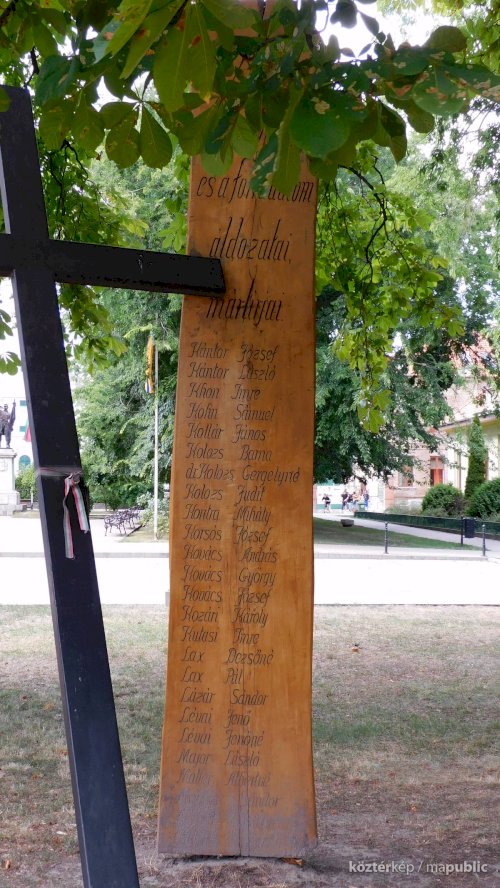 és a forradalom
áldozatai,
mártírjai.
Kántor József
Kántor László
Khon Imre
Kohn Sámuel
Kollár János
Kolozs Barna
dr. Kolozs Gergelyné
Kolozs Judit
Kontra Mihály
Korsós József
Kovács András
Kovács György
Kovács József
Kozári Károly
Kulasi Imre
Lax Dezsőné
Lax Pál
Lázár Sándor
Lévai Jenő
Lévai Jenőné
Major László
köztérkép / mapublic